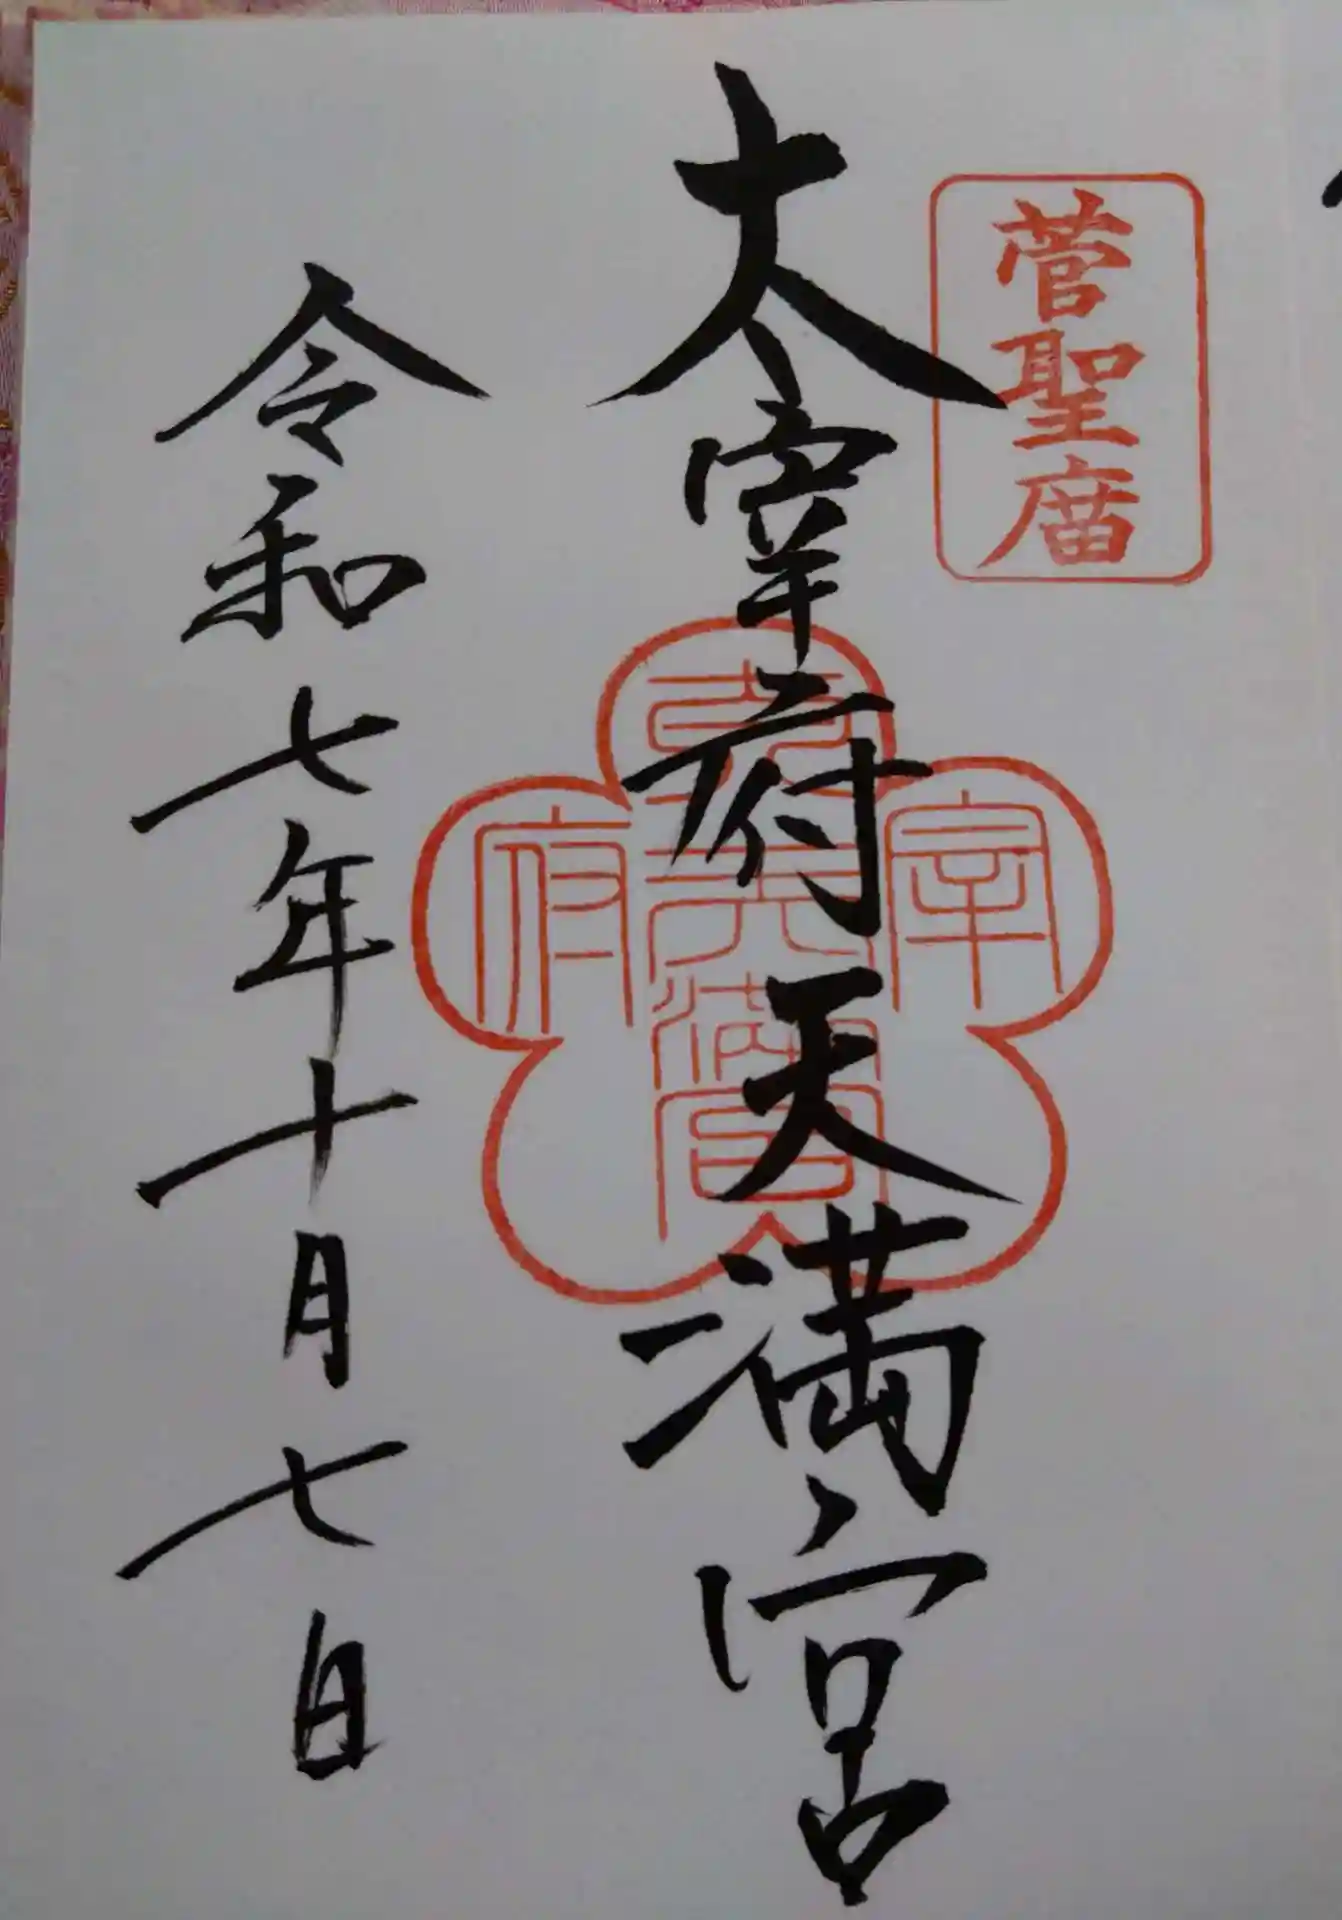 菅聖庿
太宰府天満宮
宰府
天満宮
令和七年十月七日